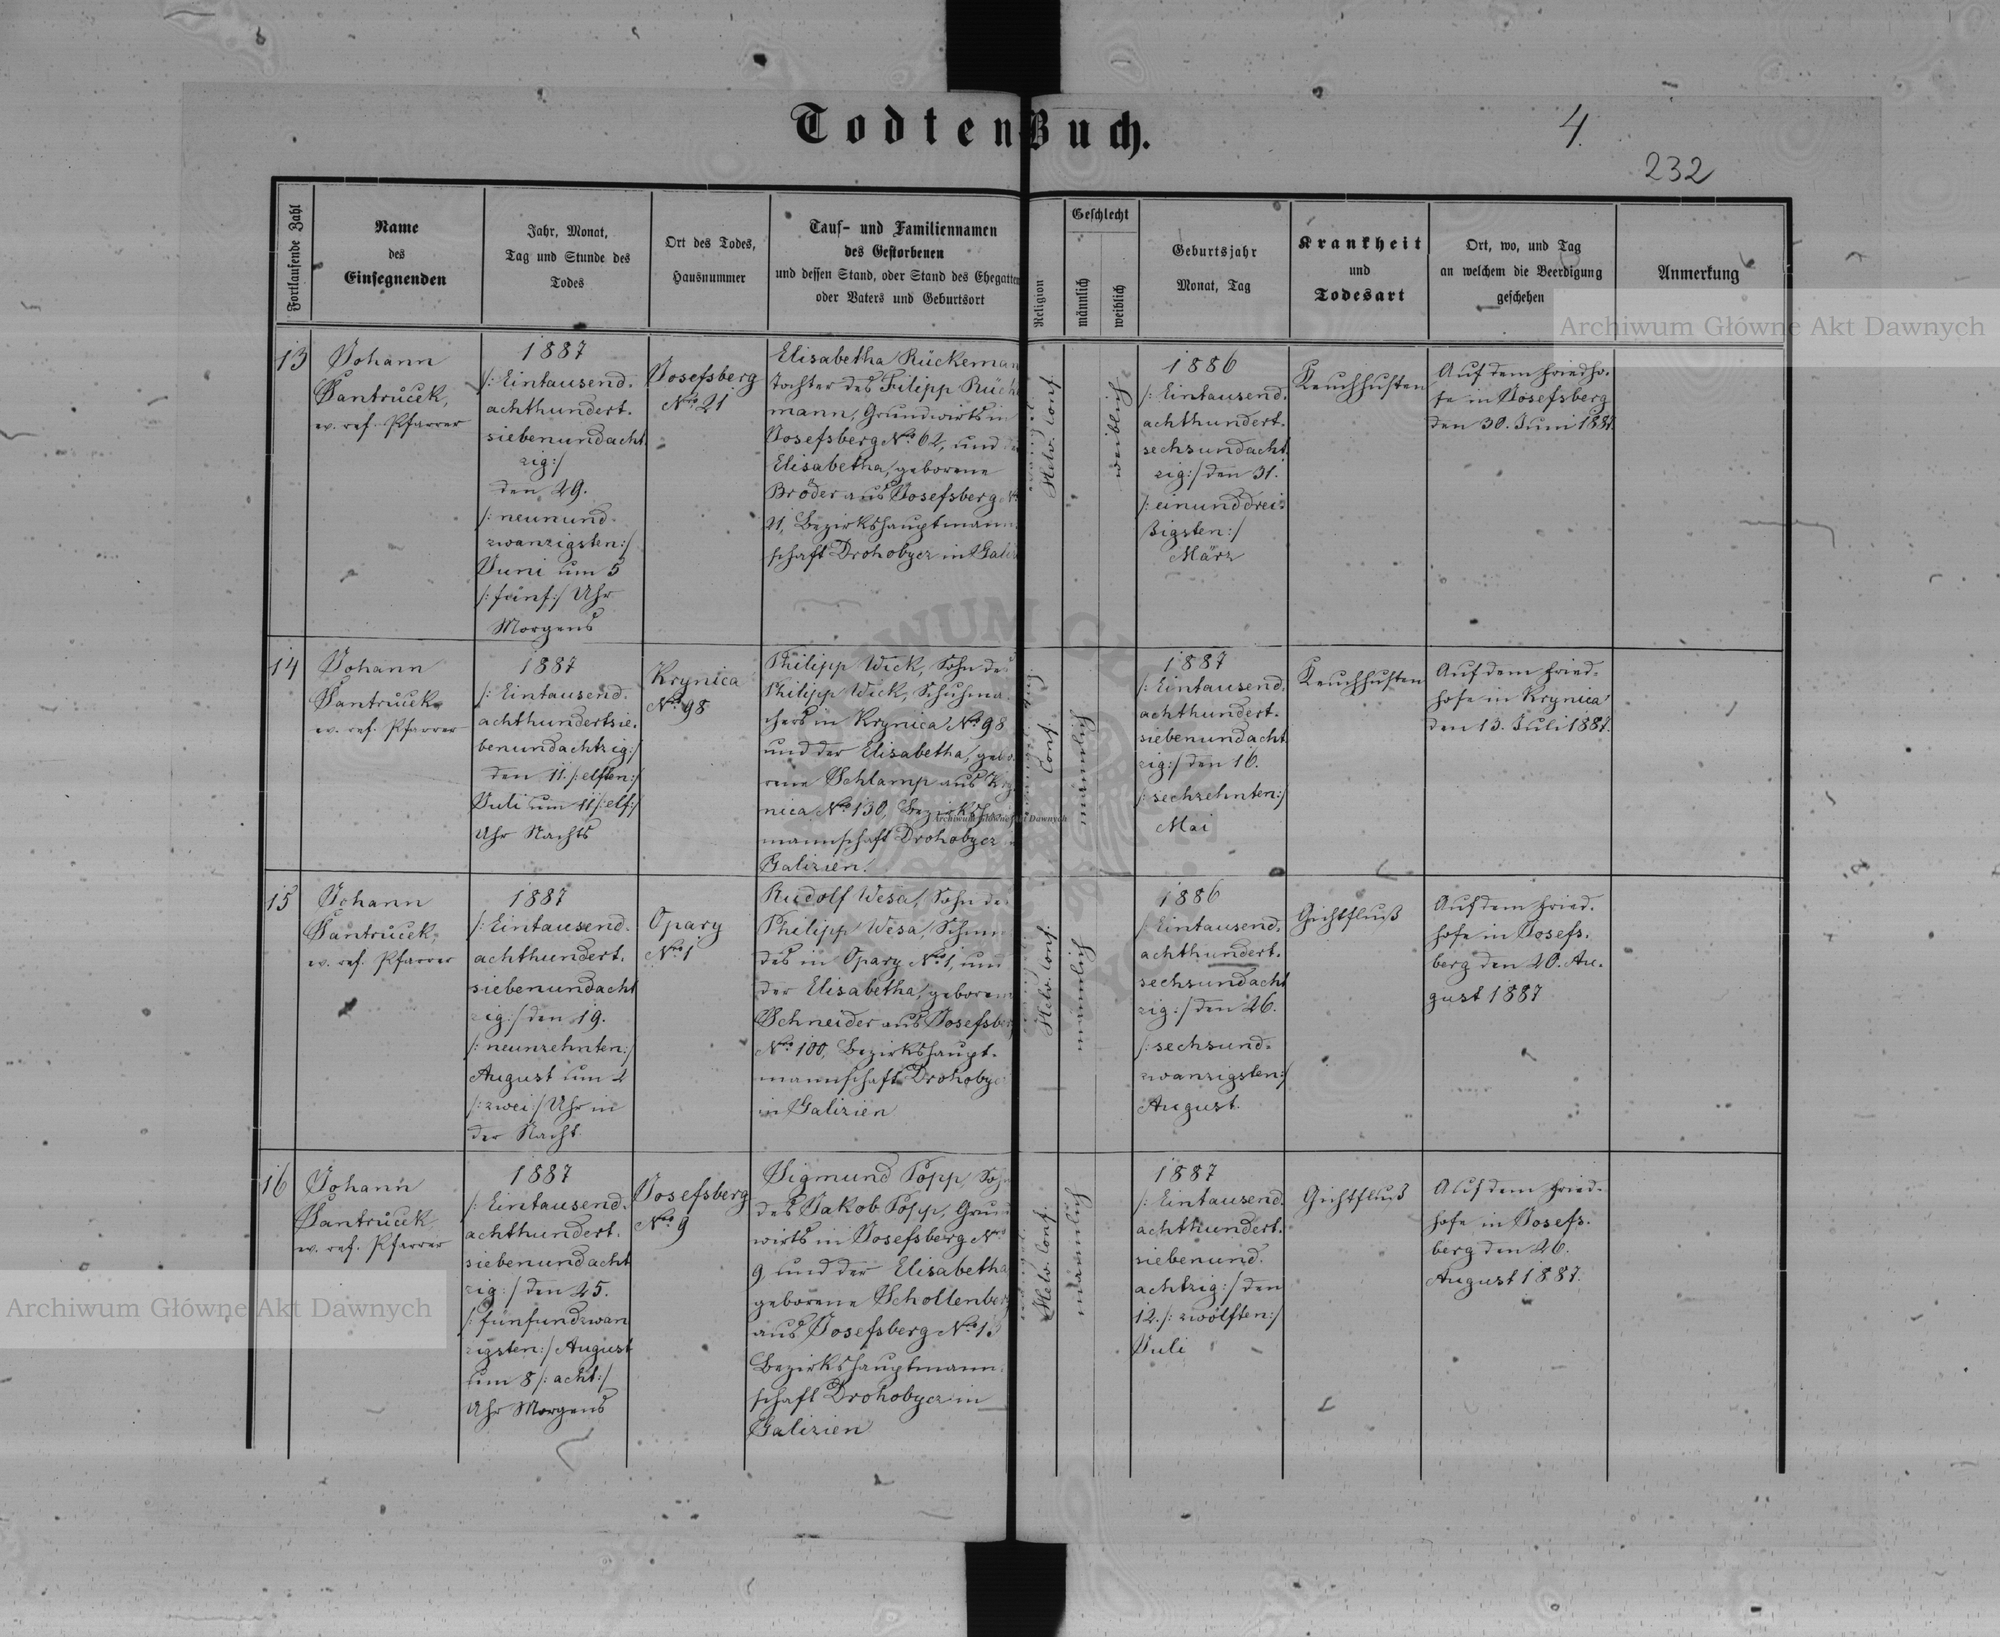 Todten Buch.
4.
232
Fortlaufende Zahl
Name
des
Einsegnenden
Jahr, Monat,
Tag und Stunde des
Todes
Ort des Todes,
Hausnummer
Tauf- und Familiennamen
des Gestorbenen
und dessen Stand, oder Stand des Ehegatten
oder Vaters und Geburtsort
Religion
Geschlecht
männlich
weiblich
Geburtsjahr
Monat, Tag
Krankheit
und
Todesart
Ort, wo, und Tag
an welchem die Beerdigung
geschehen
Anmerkung
13
Johann
Jantrůček,
ev. ref. Pfarrer
1887
/: Eintausend.
achthundert.
siebenundacht
zig:/
den 29.
/: neunund.
zwanzigsten:/
Juni um 5
/: fünf:/ Uhr
Morgens
Josefsberg
No 21
Elisabetha Rückeman
Tochter des Filipp Rück
mann, Grundwirts in
Josefsberg No 62, und
Elisabetha, geborene
Bröder aus Josefsberg N
21, Bezirkshauptmann
schaft Drohobycz in Gali
Helv. Conf.
weiblich
1886
/: Eintausend.
achthundert.
sechsundacht
zig:/ den 31.
/: einunddrei-
ßigsten:/
März
Keuchhusten
Auf dem Friedho.
fe in Josefsberg
den 30. Juni 1887.
14
Johann
Jantrůček
ev. ref. Pfarrer
1887
/: Eintausend.
achthundertsie.
benundachtzig:/
den 11. /: elften:/
Juli um 11 /: elf:/
Uhr Nachts
Krynica
No 98
Philipp Wick, Sohn de
Philipp Wick, Schuhma
chers in Krynica No 98
und der Elisabetha, gebo
rene Schlamp aus Kry
nica No 130, Bezirksh
mannschaft Drohobycz
Galizien.
Conf.
männlich
1887
/: Eintausend.
achthundert.
siebenundacht
zig:/ den 16.
/: sechzehnten:/
Mai
Keuchhusten
Auf dem Fried.
hofe in Krynica
den 13. Juli 1887.
15
Johann
Jantrůček
ev. ref. Pfarrer
1887
/: Eintausend.
achthundert.
siebenundacht
zig:/ den 19.
/: neunzehnten:/
August um 2
/: zwei:/ Uhr in
der Nacht
Opary
No 1
Rudolf Wesa, Sohn de
Philipp Wesa, Schmi
des in Opary No 1, und
der Elisabetha, geboren
Schneider aus Josefsber
No 100, Bezirkshaupt.
mannschaft Drohobyc
in Galizien
Helv. Conf.
männlich
1886
/: Eintausend.
achthundert.
sechsundacht
zig:/ den 26.
/: sechsund.
zwanzigsten:/
August.
Gichtfluß
Auf dem Fried.
hofe in Josefs.
berg den 20. Au.
gust 1887
16
Johann
Jantrůček
ev. ref. Pfarrer
1887
/: Eintausend.
achthundert.
siebenundacht
zig:/ den 25.
/: fünfundzwan
zigsten:/ August
um 8 /: acht:/
Uhr Morgens
Josefsberg
No 9
Sigmund Popp, Soh
des Jakob Popp, Grun
wirts in Josefsberg No
9, und der Elisabetha
geborene Schollenber
aus Josefsberg No 13
Bezirkshauptmann.
schaft Drohobycz in
Galizien
Helv. Conf.
männlich
1887
/: Eintausend.
achthundert.
siebenund.
achtzig:/ den
12. /: zwölften:/
Juli
Gichtfluß
Auf dem Fried.
hofe in Josefs.
berg den 26.
August 1887.
Archiwum Główne Akt Dawnych
Archiwum Główne Akt Dawnych
Archiwum Główne Akt Dawnych